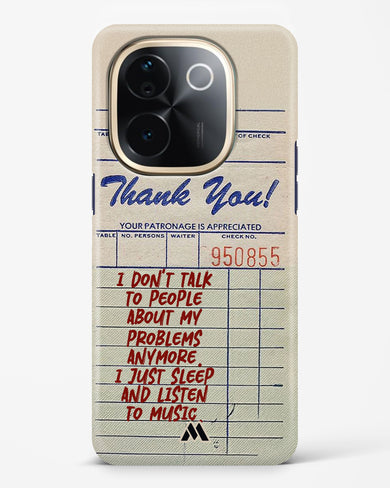 TAB
OF CHECK
Thank You!
YOUR PATRONAGE IS APPRECIATED
TABLE NO. PERSONS WAITER CHECK NO.
950855
I DON'T TALK
TO PEOPLE
ABOUT MY
PROBLEMS
ANYMORE.
I JUST SLEEP
AND LISTEN
TO MUSIC